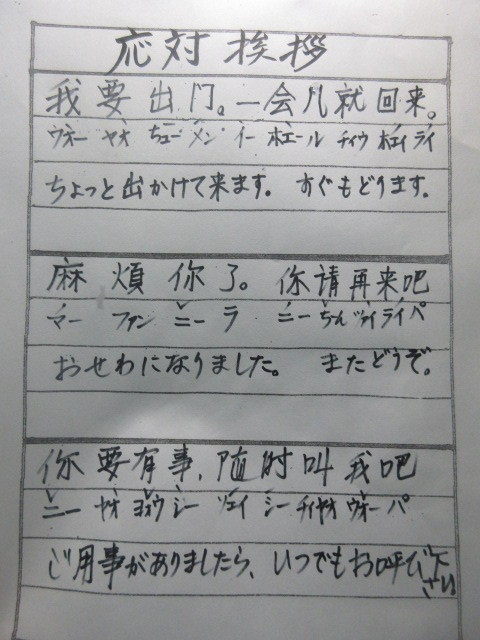 応対挨拶
我要出门。一会儿就回来。
ウオー ヤオ チュー メン イー ホエール チィウ ホエイ ライ
ちょっと出かけて来ます。 すぐもどります。
麻煩你了。 你请再来吧
マー ファン ニー ラ ニー ちん ヅァイ ライ パ
おせわになりました。 またどうぞ。
你要有事,随时叫我吧
ニー ヤオ ヨオウ シー ツエイ シー チィヤオ ウオー パ
ご用事がありましたら、いつでもお呼び下さい